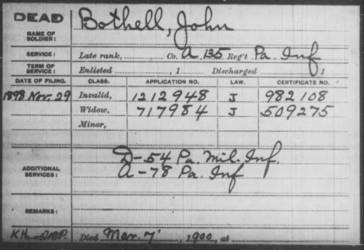 DEAD
NAME OF SOLDIER: Bothell, John
SERVICE: Late rank, Co. A, 135 Reg't Pa. Inf
TERM OF SERVICE: Enlisted , 1 Discharged , 1
DATE OF FILING. CLASS. APPLICATION NO. LAW. CERTIFICATE NO.
1898 Nov. 29 Invalid, 1212948 J 982108
Widow, 717984 J 509275
Minor,
ADDITIONAL SERVICES: D-54 Pa. Mil. Inf.
A-78 Pa. Inf
REMARKS:
Died Mar. 7, 1900, at